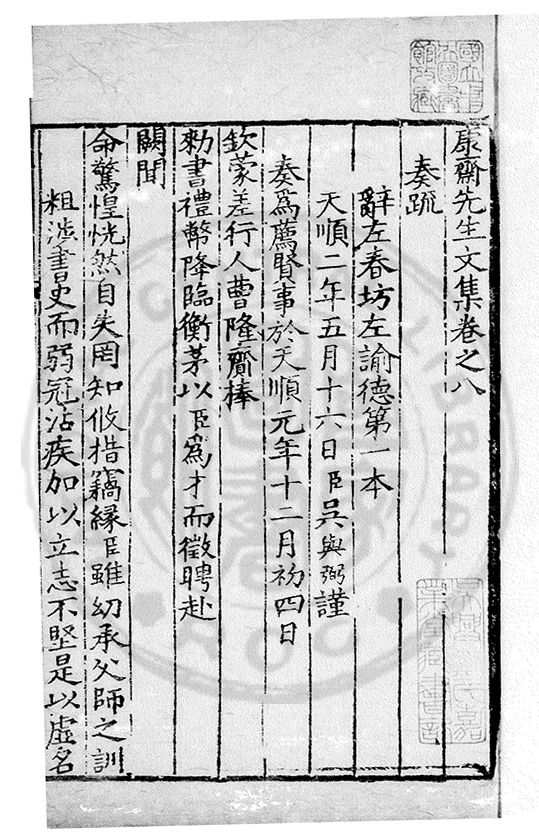 康齋先生文集卷之八
奏疏
辭左春坊左諭德第一本
天順二年五月十六日臣吳與弼謹
奏為薦賢事於天順元年十二月初四日
欽蒙差行人曹隆齎捧
勑書禮幣降臨衡茅以臣為才而徵聘赴
闕聞
命驚惶恍然自失罔知攸措竊緣臣雖幼承父師之訓
粗涉書史而弱冠沾疾加以立志不堅是以虛名